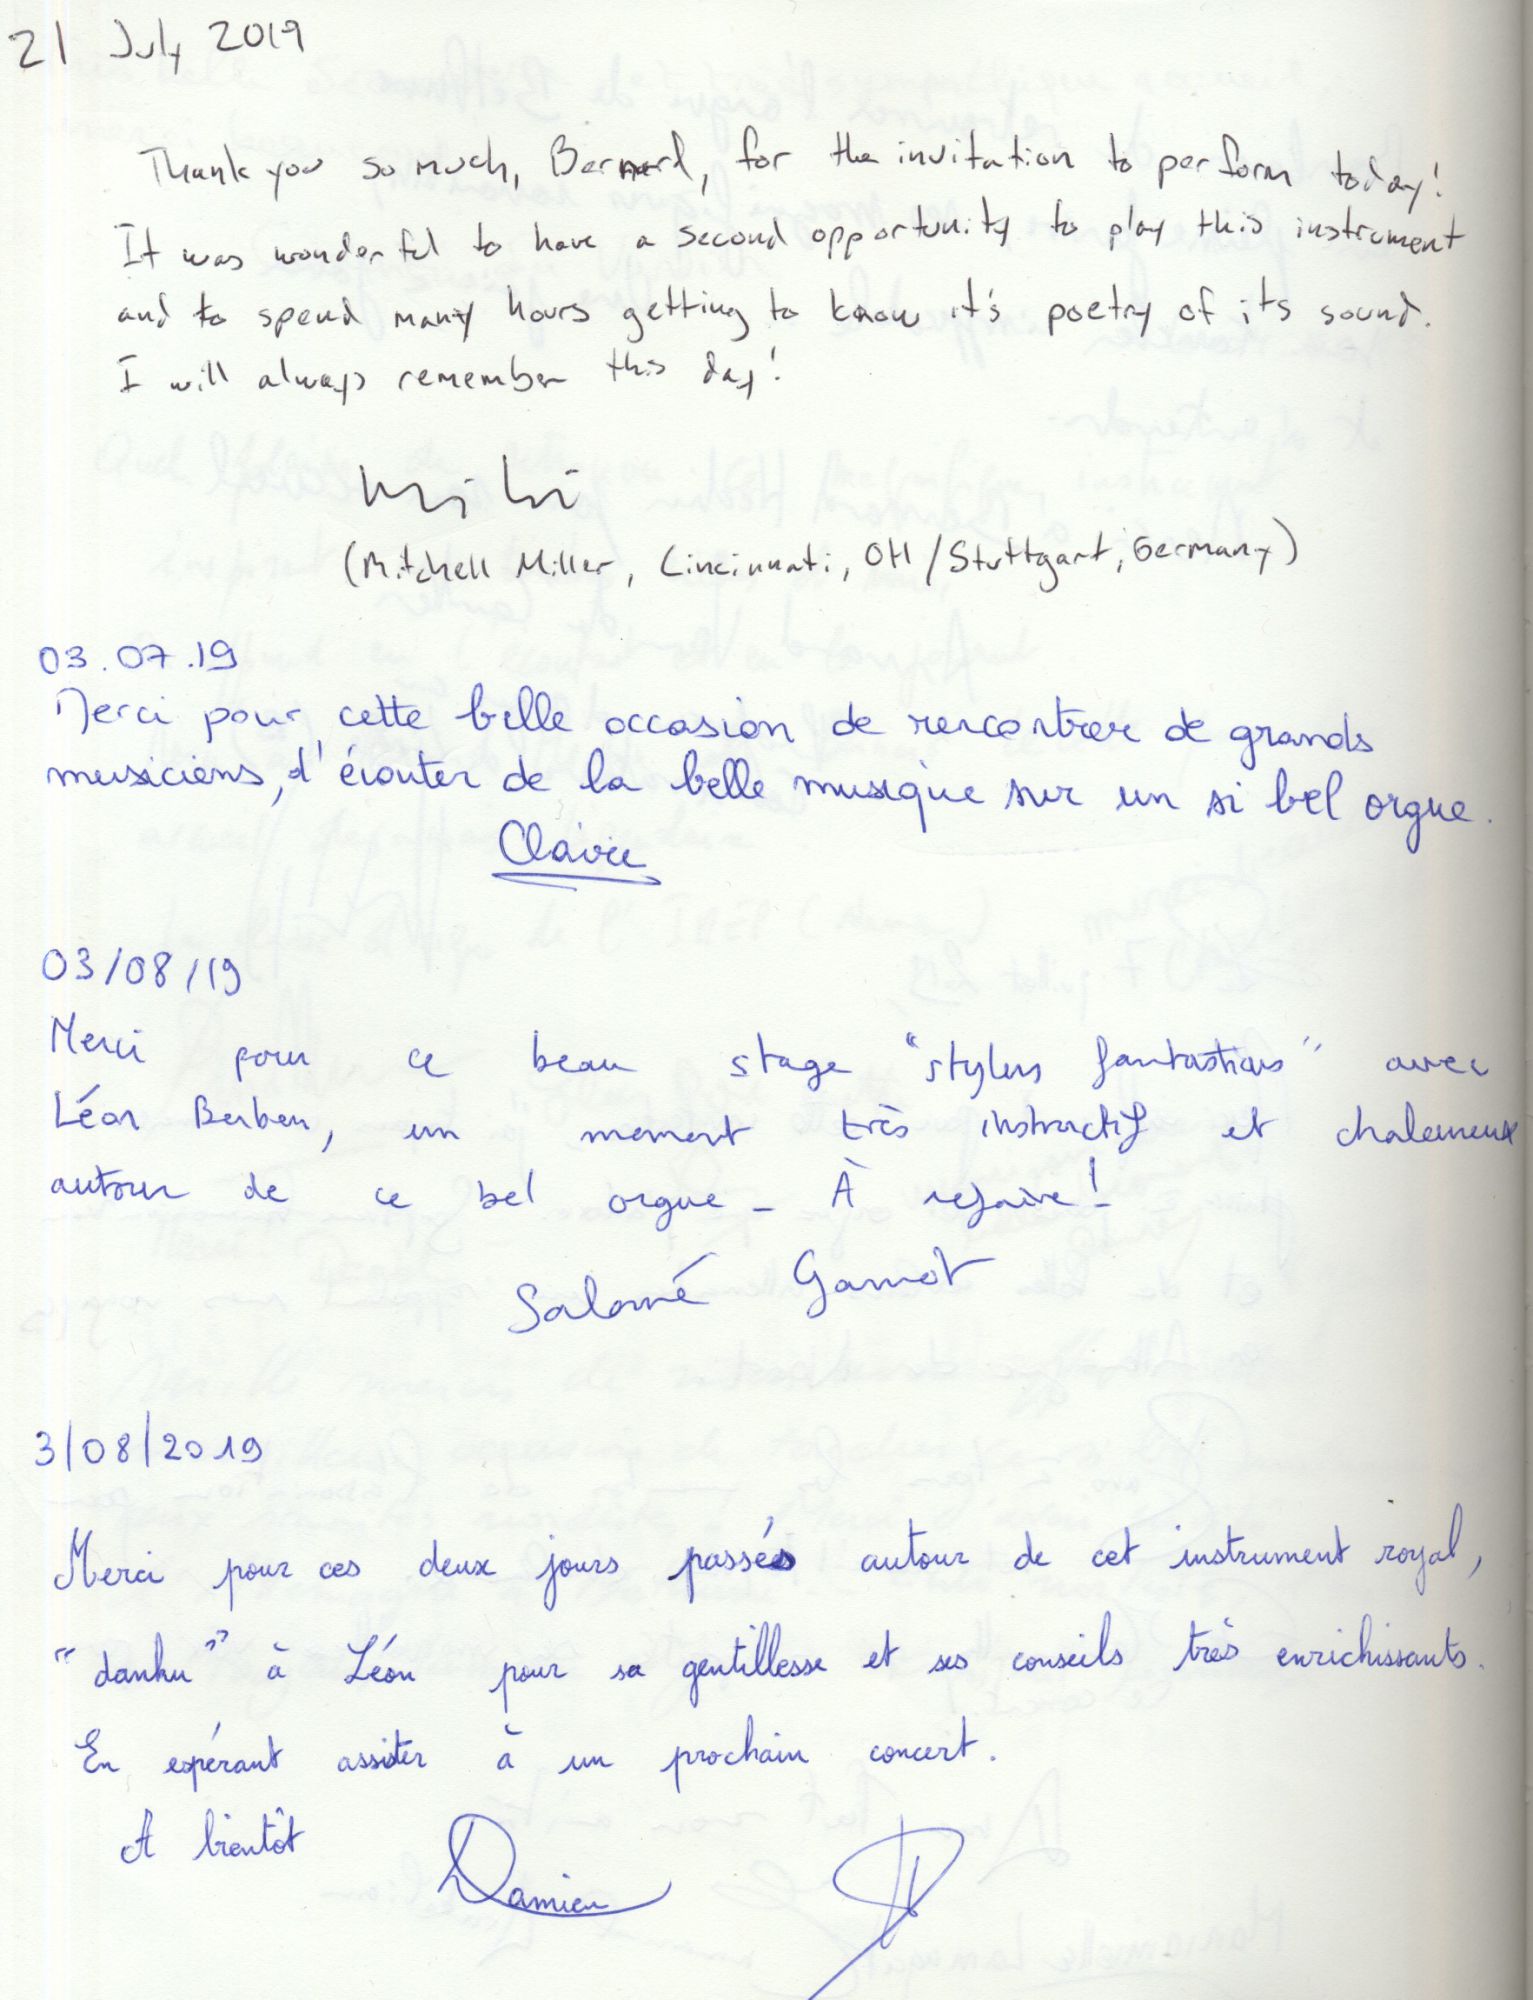 21 July 2019
Thank you so much, Bernard, for the invitation to perform today!
It was wonderful to have a second opportunity to play this instrument
and to spend many hours getting to know it's poetry of its sound.
I will always remember this day!
(Mitchell Miller, Cincinnati, OH/Stuttgart, Germany)
03.07.19
Merci pour cette belle occasion de rencontrer de grands
musiciens, d'écouter de la belle musique sur un si bel orgue.
03/08/19
Merci pour ce beau stage "stylus fantasticus" avec
Léon Berben, un moment très instructif et chaleureux
autour de ce bel orgue - À refaire!
Salomé Gamot
3/08/2019
Merci pour ces deux jours passés autour de cet instrument royal,
"danku" à Léon pour sa gentillesse et ses conseils très enrichissants.
En espérant assister à un prochain concert.
A bientôt
Damien